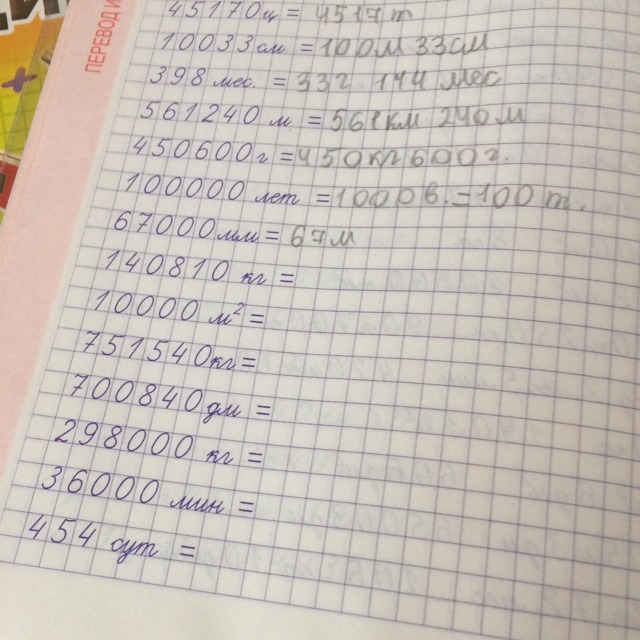 ПЕРЕВОД И
45170ц = 4517т
10033см = 100м 33см
398 мес. = 33г 144 мес
561240 м = 561км 240м
450600г = 450кг 600г.
100000 лет = 1000в. = 100 т.
67000мм = 67м
140810 кг =
10000 м² =
751540кг =
700840дм =
298000 кг =
36000 мин =
454 сут =